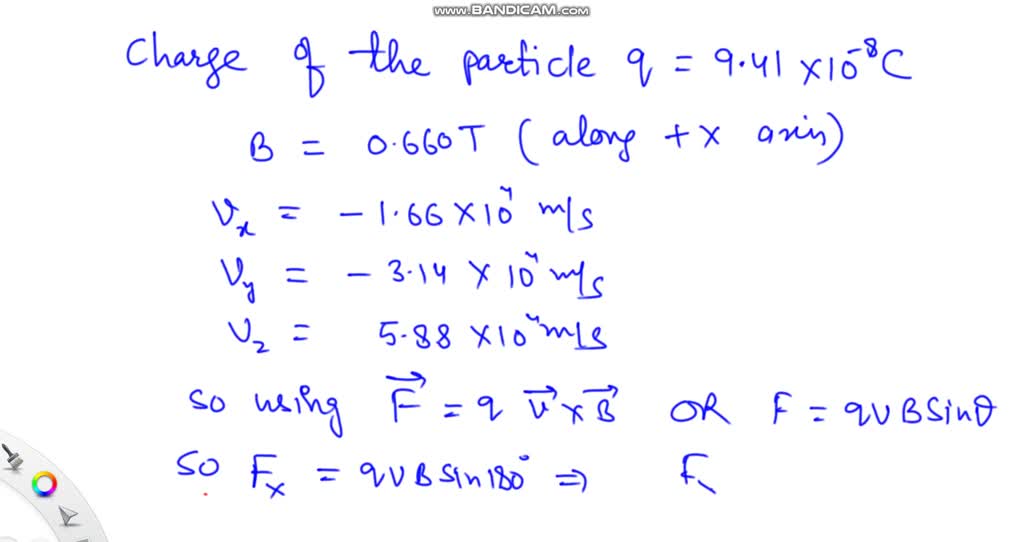 www.BANDICAM.com
Charge of the particle q = 9.41 × 10⁻⁸ C
B = 0.660 T ( along + x axis )
Vₓ = - 1.66 × 10⁴ m/s
Vy = - 3.14 × 10⁴ m/s
V₂ = 5.88 × 10⁴ m/s
so using F⃗ = q v⃗ × B⃗ OR F = qvB Sinθ
SO Fₓ = qvB Sin 180° ⇒ F